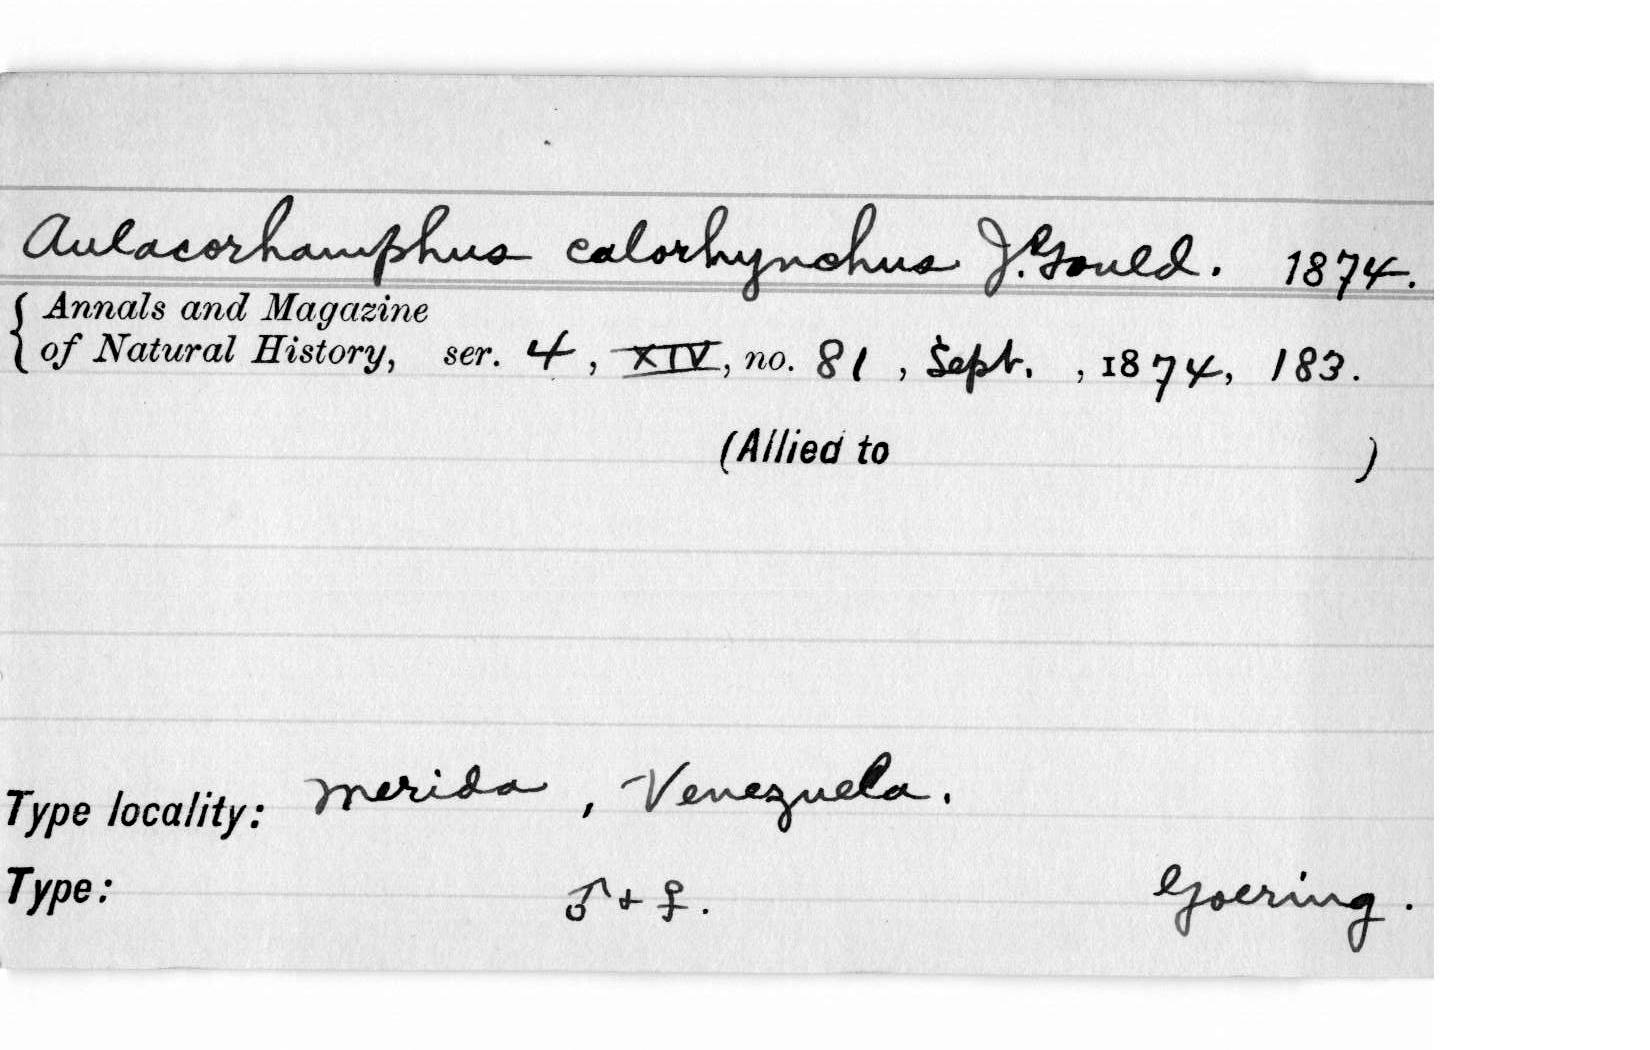 Aulacorhamphus calorhynchus J. Gould. 1874.
{ Annals and Magazine
of Natural History, ser. 4, XIV, no. 81, Sept., 1874, 183.
(Allied to )
Type locality: Merida, Venezuela.
Type: ♂ + ♀. Goering.